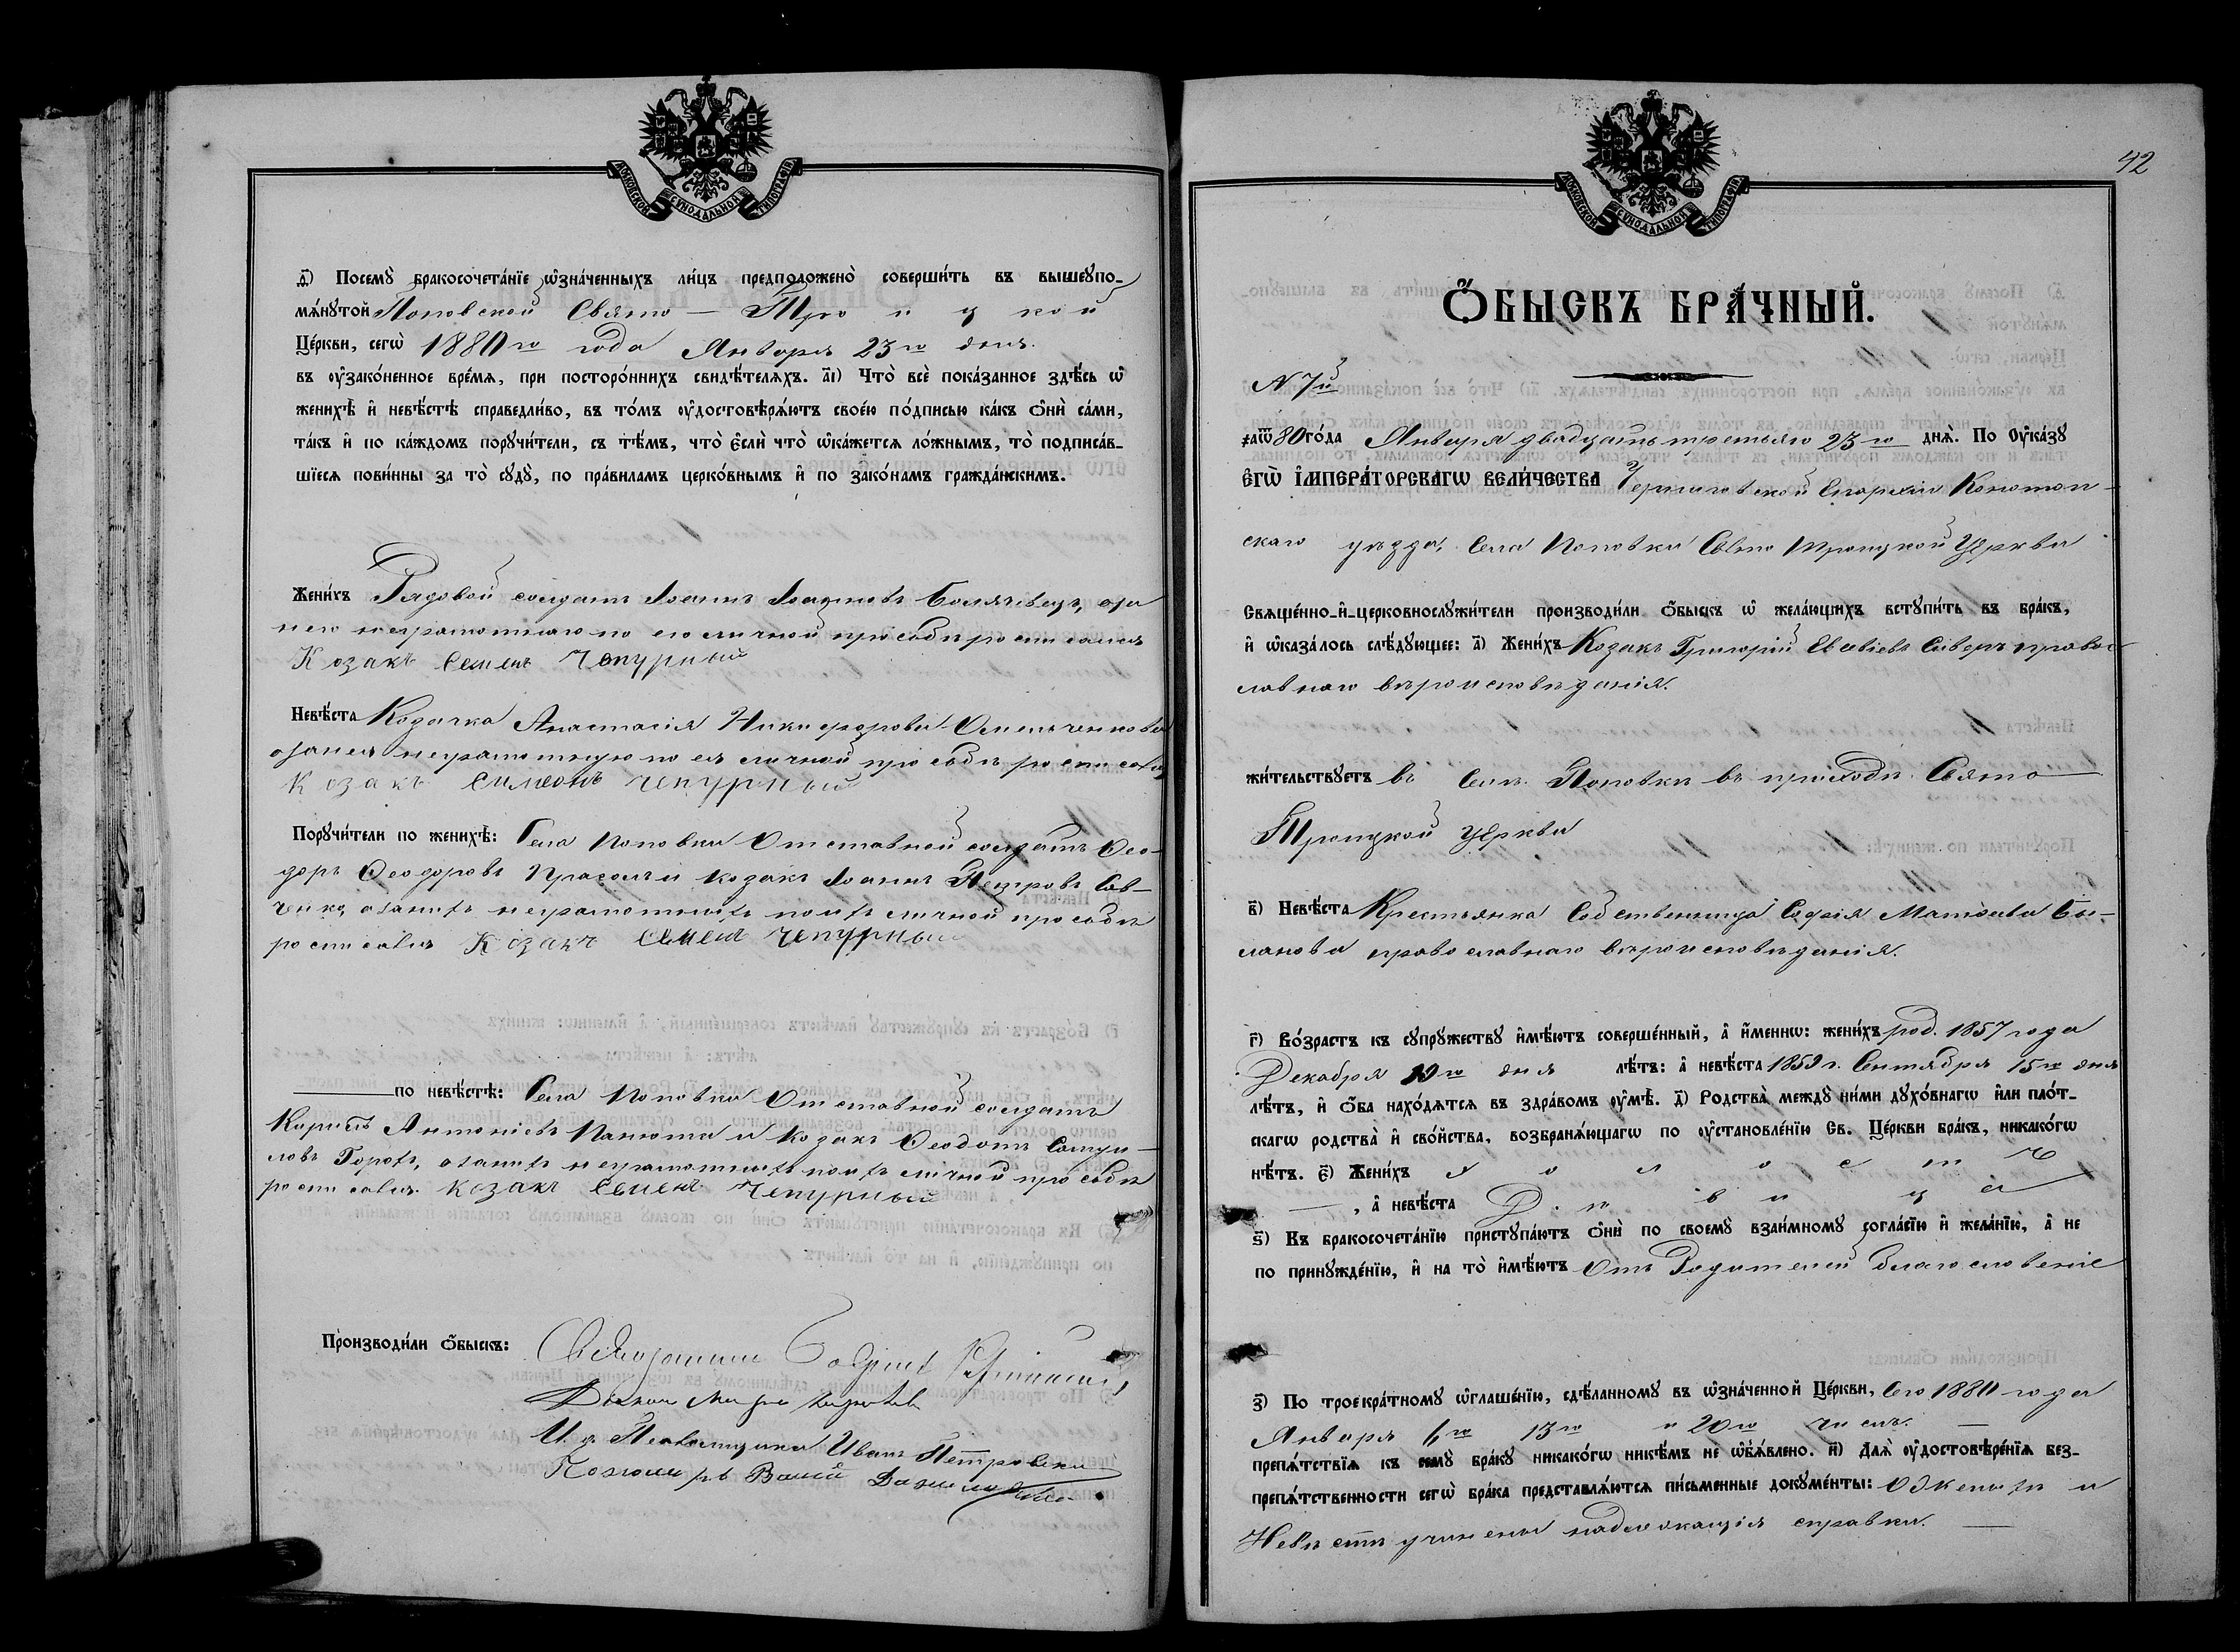 МОСКОВСКОЙ СУНОДАЛЬНОЙ ТИПОГРАФІИ
д҃) Посемꙋ̀ бракосочета́нїе ѡ҆зна́ченныхъ ли́цъ предположено̀ соверши́ть въ вышеꙋпо-
мѧ́нꙋтой Поповской Свято-Троицкой
Це́ркви, сегѡ̀ 1880го года Января 23го дня.
въ ᲂу҆зако́ненное вре́мѧ, при посторо́ннихъ свидѣ́телѧхъ. а҃і) Что̀ всѐ пока́занное здѣ́сь ѡ҆
женихѣ̀ и҆ невѣ́стѣ справедли́во, въ то́мъ ᲂу҆достовѣрѧ́ютъ свое́ю по́дписью ка́къ ѻ҆нѝ са́ми,
та́къ и҆ по ка́ждомъ порꙋчи́тели, съ тѣ́мъ, что̀ є҆́сли что̀ ѡ҆ка́жетсѧ ло́жнымъ, то̀ подписа́в-
шїесѧ пови́нны за то̀ сꙋдꙋ̀, по пра́виламъ церко́внымъ и҆ по зако́намъ гражда́нскимъ.
Жени́хъ Рядовой солдатъ Іоаннъ Іоанновъ, а за
него неграмотнаго по его личной просьбѣ росписался
Козакъ Семенъ Чепурный
Невѣ́ста Козачка Анастасія Никифорова Омельченкова
а за нея неграмотную по ея личной просьбѣ росписался
Козакъ Симеонъ Чепурный
Порꙋчи́тели по женихѣ̀: Села Поповки Отставной солдатъ Ѳео-
доръ Ѳеодоровъ Прасолъ и козакъ Іоаннъ Петровъ Сав-
ченко, а за нихъ неграмотныхъ по ихъ личной просьбѣ
росписался Козакъ Семенъ Чепурный
по невѣ́стѣ: Села Поповки Отставной солдатъ
Кирилъ Антоніевъ Панюта и козакъ Ѳеодотъ
Горохъ, а за нихъ неграмотныхъ по ихъ личной просьбѣ
росписался козакъ Семенъ Чепурный
Производи́ли ѻ҆́быскъ: Священникъ
И. д. Псаломщика Иванъ Петровскій
42
МОСКОВСКОЙ СУНОДАЛЬНОЙ ТИПОГРАФІИ
Ѻ҆́БЫСКЪ БРА́ЧНЫЙ.
N 7й
҂аѿ 80 го́да Января двадцать третьяго 23го днѧ̀. По Оу҆ка́зꙋ
Є҆гѡ̀ І҆мпера́торскагѡ Вели́чества Черниговской Епархіи Конотоп-
скаго уѣзда, села Поповки Свято Троицкой Церкви
Свѧще́нно-и҆-церковнослꙋжи́тели производи́ли ѻ҆́быскъ ѡ҆ жела́ющихъ встꙋпи́ть въ бра́къ,
и҆ ѡ҆каза́лось слѣ́дꙋющее: а҃) Жени́хъ Козакъ Григорій Савіевъ Сиверъ правос-
лавнаго вѣроисповѣданія.
жи́тельствꙋетъ въ селѣ Поповки въ приходѣ Свято
Троицкой Церкви
в҃) Невѣ́ста Крестьянка Собственница Софія Матѳеева Би-
ланова православнаго вѣроисповѣданія.
г҃) Во́зрастъ къ сꙋпрꙋ́жествꙋ и҆мѣ́ютъ соверше́нный, а҆ и҆́менно: жени́хъ род. 1857 года
Декабря 19го дня лѣ́тъ: а҆ невѣ́ста 1859 г. Сентября 15го дня
лѣ́тъ, и҆ ѻ҆́ба нахо́дѧтсѧ въ здра́вомъ ᲂу҆мѣ̀. д҃) Родства̀ междꙋ̀ ни́ми дꙋхо́внагѡ и҆ли пло́т-
скагѡ родства̀ и҆ сво́йства, возбранѧ́ющагѡ по ᲂу҆становле́нїю Св. Це́ркви бра́къ, никако́гѡ
нѣ́тъ. є҃) Жени́хъ холостъ
, а҆ невѣ́ста Дѣвица
ѕ҃) Къ бракосочета́нїю пристꙋпа́ютъ ѻ҆нѝ по своемꙋ̀ взаи́мномꙋ согла́сїю и҆ жела́нїю, а҆ не
по принꙋжде́нїю, и҆ на то̀ и҆мѣ́ютъ Отъ Родителей благословеніе
з҃) По троекра́тномꙋ ѡ҆глаше́нїю, сдѣ́ланномꙋ въ ѡ҆зна́ченной Це́ркви, Сего 1880 года
Января 6го 13го и 20го числъ.
препѧ́тствїѧ къ семꙋ̀ бра́кꙋ никако́гѡ никѣ́мъ не ѡ҆б̾ѧ́влено. и҃) Длѧ̀ ᲂу҆достовѣре́нїѧ без-
препѧ́тственности сегѡ̀ бра́ка представлѧ́ютсѧ пи́сьменные докꙋме́нты: О Женихѣ и
Невѣстѣ учинены надлежащія справки.